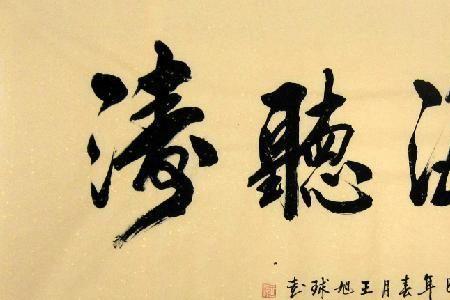 聽濤
年春月王旭球書